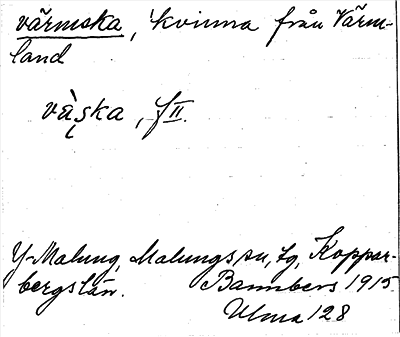 värmska, 'kvinna från Värm-
land
vȁ̜ska, f II.
Y-Malung, Malungs sn, tg, Koppar-
bergs län. Bannbers 1915
Ulma 128